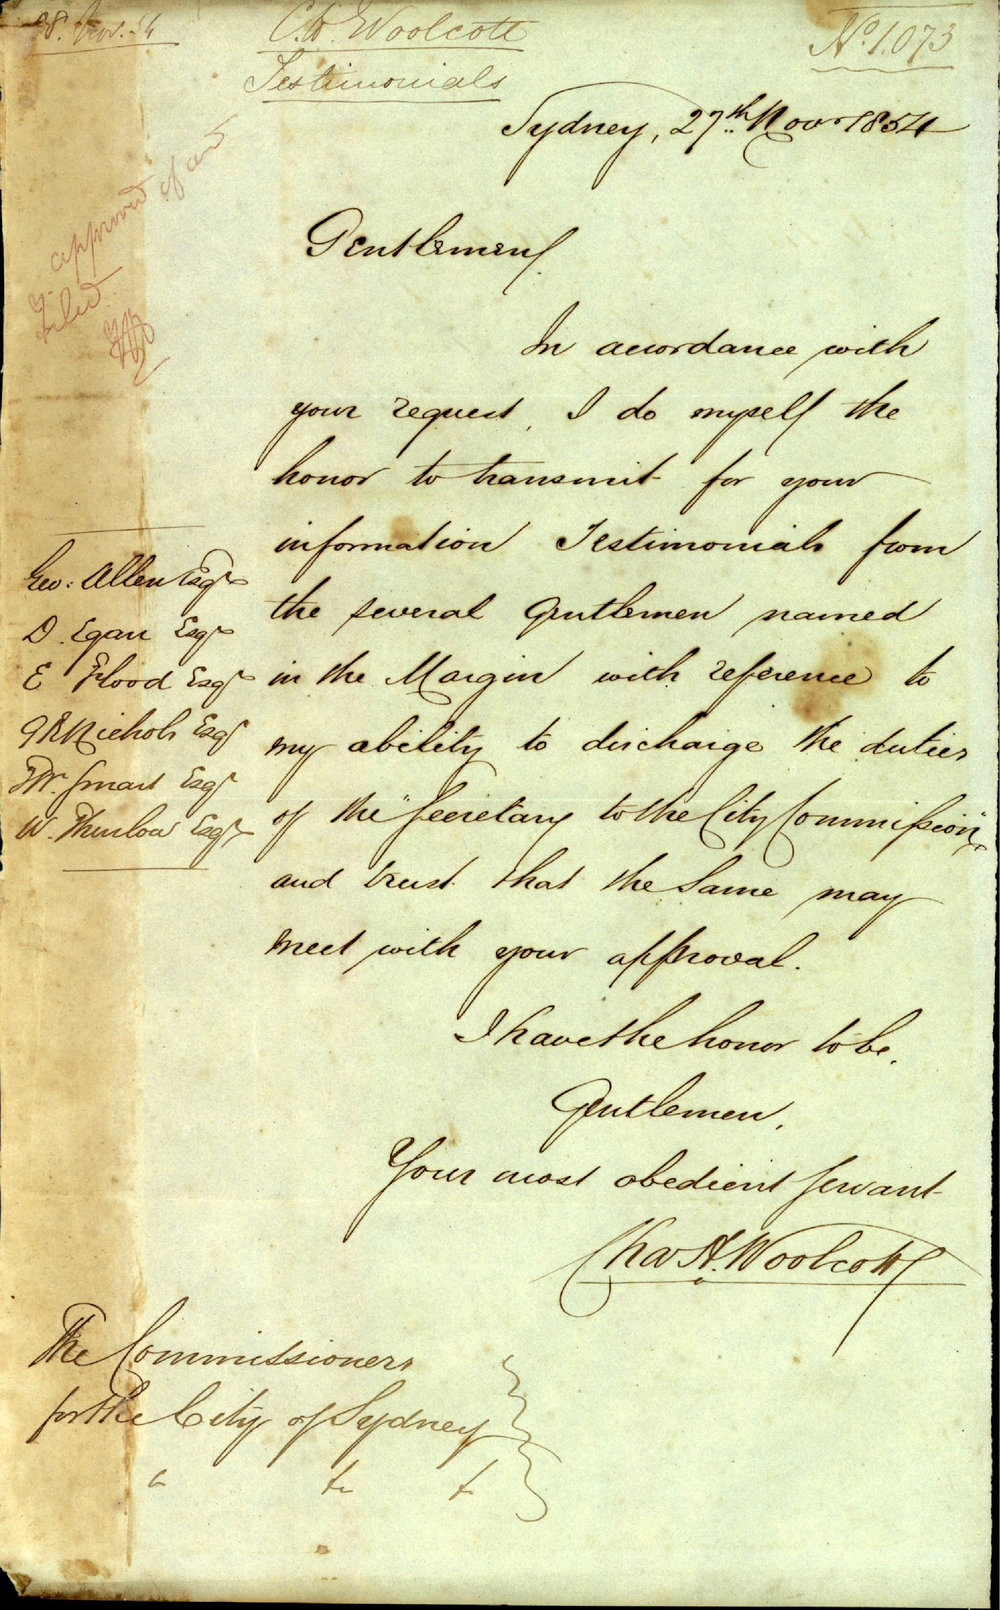 28. Nov. 54
C.H. Woolcott
Testimonials
No. 1.073
Sydney, 27th Nov 1854
approved of and
Filed.
Gentlemen,
In accordance with
your request, I do myself the
honor to transmit for your
information Testimonials from
the several Gentlemen named
in the Margin with reference to
my ability to discharge the duties
of the "Secretary to the City Commission",
and trust that the same may
meet with your approval.
Geo: Allen Esqr
D. Egan Esqr
E Flood Esqr
G R Nichols Esqr
T W. Smart Esqr
W. Thurlow Esqr
I have the honor to be,
Gentlemen,
Your most obedient servant
Chas H. Woolcott
The Commissioners
for the City of Sydney